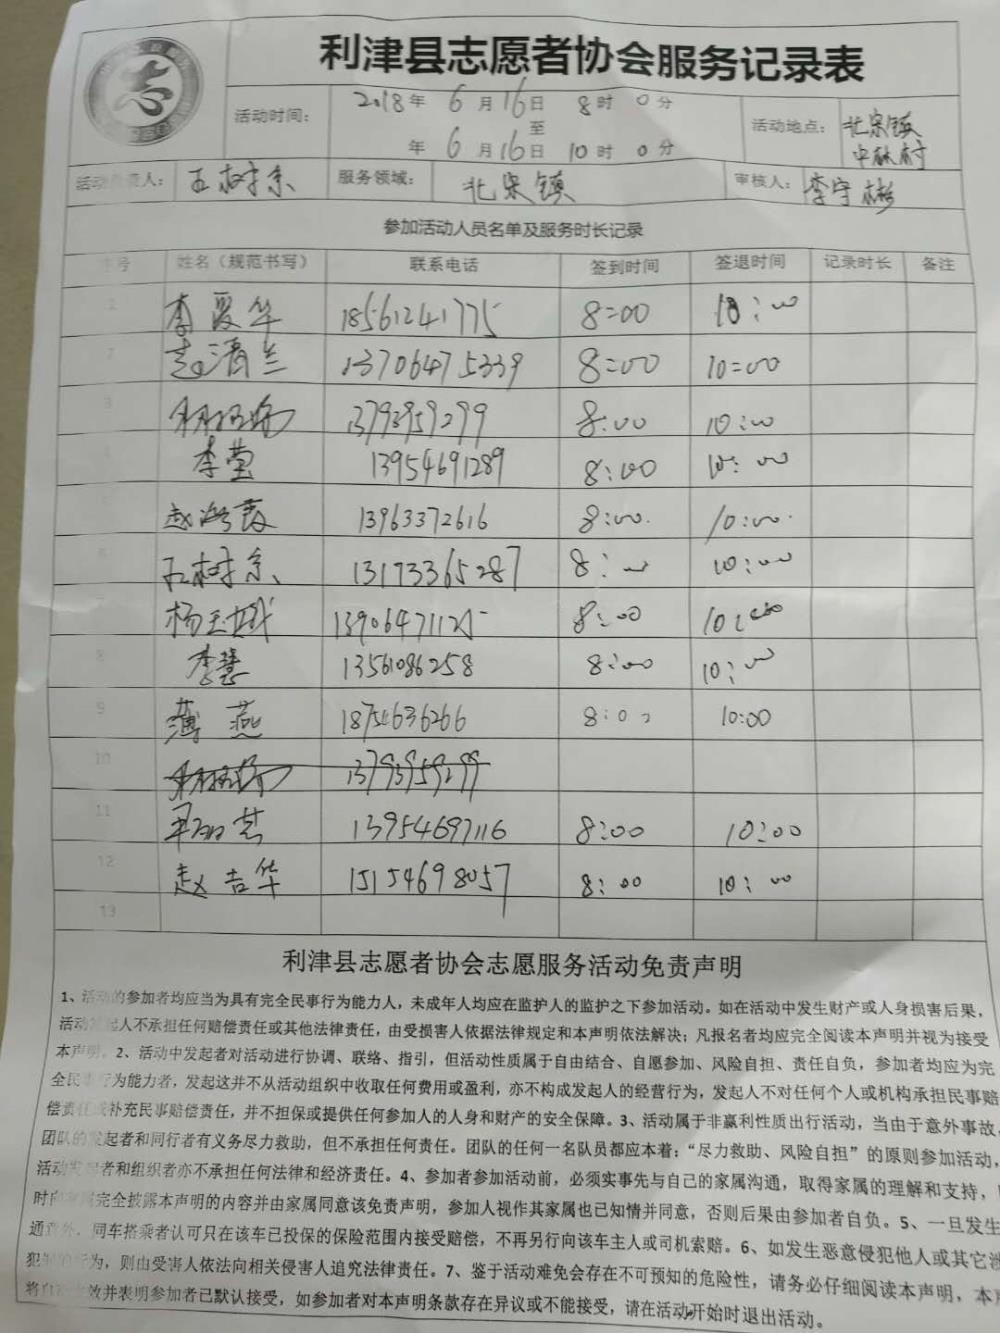 利津县志愿者协会服务记录表
活动时间： 2018年 6月16日 8时 0分
至
年 6月16日 10时 0分
活动地点： 北宋镇
活动负责人： 服务领域： 北宋镇 审核人： 李守彬
参加活动人员名单及服务时长记录
序号 姓名（规范书写） 联系电话 签到时间 签退时间 记录时长 备注
李爱华 18561241775 8:00 10:00
13706475339 8:00 10:00
13793959299 8:00 10:00
李莹 13954691289 8:00 10:00
13963372616 8:00 10:00
13173365287 8:00 10:00
8:00 10:00
8 李慧 8:00 10:00
9 薄燕 8:00 10:00
10 13793959299
11 13954697116 8:00 10:00
12 赵吉华 15154698057 8:00 10:00
13
利津县志愿者协会志愿服务活动免责声明
1、活动的参加者均应当为具有完全民事行为能力人，未成年人均应在监护人的监护之下参加活动。如在活动中发生财产或人身损害后果，
活动发起人不承担任何赔偿责任或其他法律责任，由受损害人依据法律规定和本声明依法解决；凡报名者均应完全阅读本声明并视为接受
本声明。2、活动中发起者对活动进行协调、联络、指引，但活动性质属于自由结合、自愿参加、风险自担、责任自负，参加者均应为完
全民事行为能力者，发起这并不从活动组织中收取任何费用或盈利，亦不构成发起人的经营行为，发起人不对任何个人或机构承担民事赔
偿责任或补充民事赔偿责任，并不担保或提供任何参加人的人身和财产的安全保障。3、活动属于非赢利性质出行活动，当由于意外事故，
团队的发起者和同行者有义务尽力救助，但不承担任何责任。团队的任何一名队员都应本着：“尽力救助、风险自担”的原则参加活动，
活动发起者和组织者亦不承担任何法律和经济责任。4、参加者参加活动前，必须实事先与自己的家属沟通，取得家属的理解和支持，
时向家属完全披露本声明的内容并由家属同意该免责声明，参加人视作其家属也已知情并同意，否则后果由参加者自负。5、一旦发生
通意外，同车搭乘者认可只在该车已投保的保险范围内接受赔偿，不再另行向该车主人或司机索赔。6、如发生恶意侵犯他人或其它
行为，则由受害人依法向相关侵害人追究法律责任。7、鉴于活动难免会存在不可预知的危险性，请务必仔细阅读本声明，本声
将自动生效并表明参加者已默认接受，如参加者对本声明条款存在异议或不能接受，请在活动开始时退出活动。